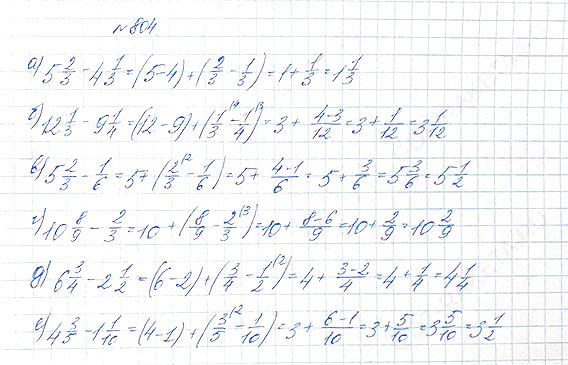 №804
а) 5 2/3 - 4 1/3 = (5-4) + (2/3 - 1/3) = 1 + 1/3 = 1 1/3
б) 12 1/3 - 9 1/4 = (12-9) + (1/3^{|4} - 1/4^{|3}) = 3 + (4-3)/12 = 3 + 1/12 = 3 1/12
в) 5 2/3 - 1/6 = 5 + (2/3^{|2} - 1/6) = 5 + (4-1)/6 = 5 + 3/6 = 5 3/6 = 5 1/2
г) 10 8/9 - 2/3 = 10 + (8/9 - 2/3^{|3}) = 10 + (8-6)/9 = 10 + 2/9 = 10 2/9
д) 6 3/4 - 2 1/2 = (6-2) + (3/4 - 1/2^{|2}) = 4 + (3-2)/4 = 4 + 1/4 = 4 1/4
е) 4 3/5 - 1 1/10 = (4-1) + (3/5^{|2} - 1/10) = 3 + (6-1)/10 = 3 + 5/10 = 3 5/10 = 3 1/2